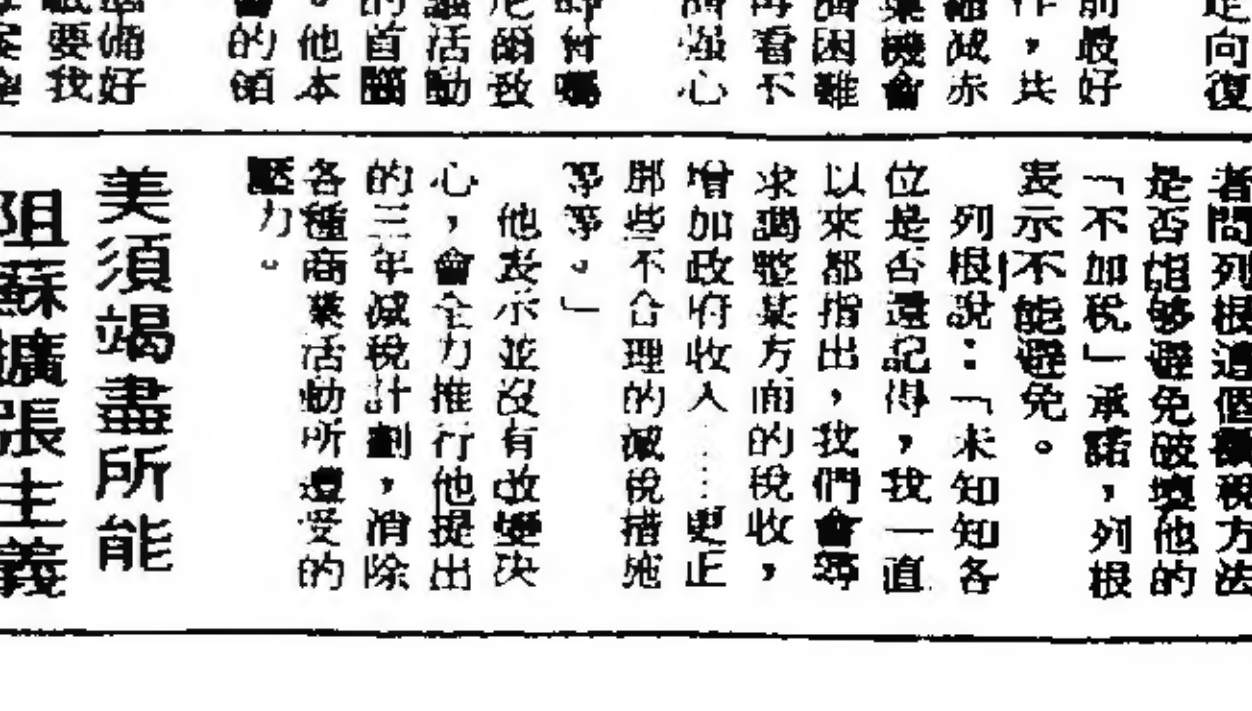 是向復
前最好
作，共
減赤
業機會
濟困難
再看不
強心
時付囑
尼爾致
議活動
的首腦
。他本
會的領
準備好
要我
者問列根這個徵稅方法
是否能够避免破壞他的
「不加税」承諾，列根
表示不能避免。
列根說：「未知知各
位是否還記得，我一直
以來都指出，我們會尋
求調整某方面的稅收，
增加政府收入……更正
那些不合理的減稅措施
等等。」
他表示並沒有改變决
心，會全力推行他提出
的三年減稅計劃，消除
各種商業活動所遭受的
壓力。
美須竭盡所能
阻蘇擴張主義